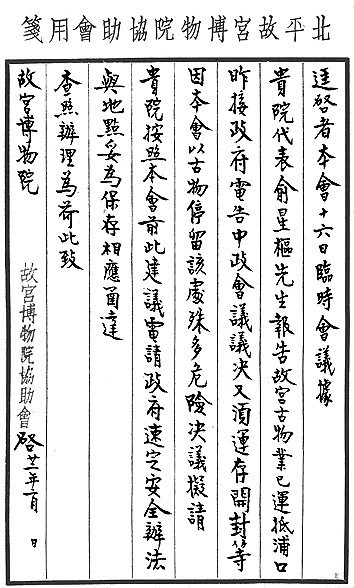 北平故宮博物院協助會用箋
逕啓者本會十六日臨時會議據
貴院代表俞星樞先生報告故宮古物業已運抵浦口
昨接政府電告中政會議議决又須運存開封等
因本會以古物停留該處殊多危險决議擬請
貴院按照本會前此建議電請政府速定安全辦法
與地點妥為保存相應函達
查照辦理為荷此致
故宮博物院
故宮博物院協助會啓廿二年二月 日